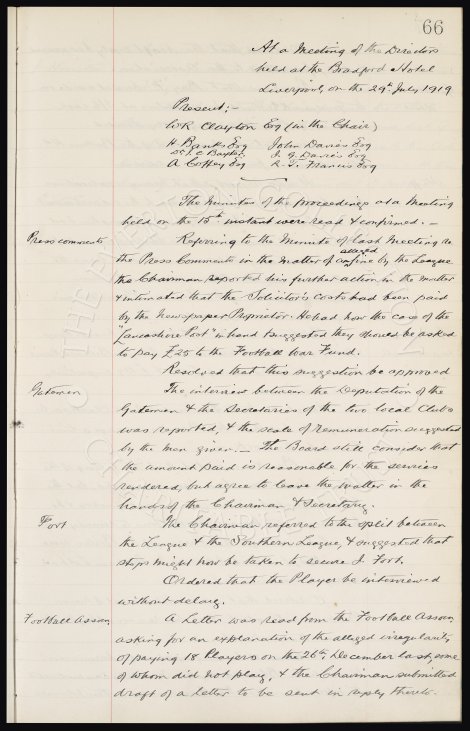 66
At a Meeting of the Directors
held at the Bradford Hotel
Liverpool, on the 29th July 1919
Present;-
W R Clayton Esq (in the Chair)
H Banks Esq John Davies Esq
Dr J. C. Baxter J. G. Davies Esq
A Coffey Esq R. T. Francis Esq
The Minutes of the proceedings at a Meeting
held on the 15th instant were read & confirmed. -
Press comments Referring to the Minute of last Meeting re
the Press Comments in the matter of an alleged fine by the League
the Chairman reported his further action in the matter
& intimated that the Solicitor's costs had been paid
by the Newspaper Proprietor. He had now the case of the
"Lancashire Post" in hand & suggested they should be asked
to pay £25 to the Football War Fund.
Resolved that this suggestion be approved
Gatemen The interview between the Deputation of the
Gatemen & the Secretaries of the two local Clubs
was reported, & the scale of remuneration suggested
by the men given. - The Board still consider that
the amount paid is reasonable for the services
rendered, but agree to leave the matter in the
hands of the Chairman & Secretary.
Fort The Chairman referred to the split between
the League & the Southern League, & suggested that
steps might now be taken to secure J. Fort.
Ordered that the Player be interviewed
without delay.
Football Assocn A letter was read from the Football Assocn
asking for an explanation of the alleged irregularity
of paying 18 Players on the 26th December last, some
of whom did not play, & the Chairman submitted
draft of a letter to be sent in reply thereto.